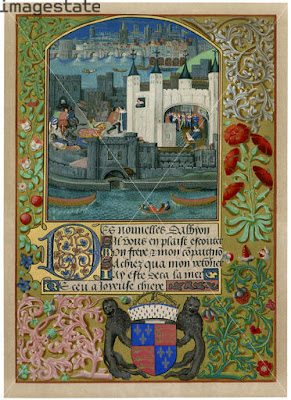 imagestate
Des nouvelles Dalbyon
Sil vous en plaist escouter
Mon frere & mon compaignon
Sachiez qua mon retorner
Jay este deca la mer
Receu a Joyeuse chiere